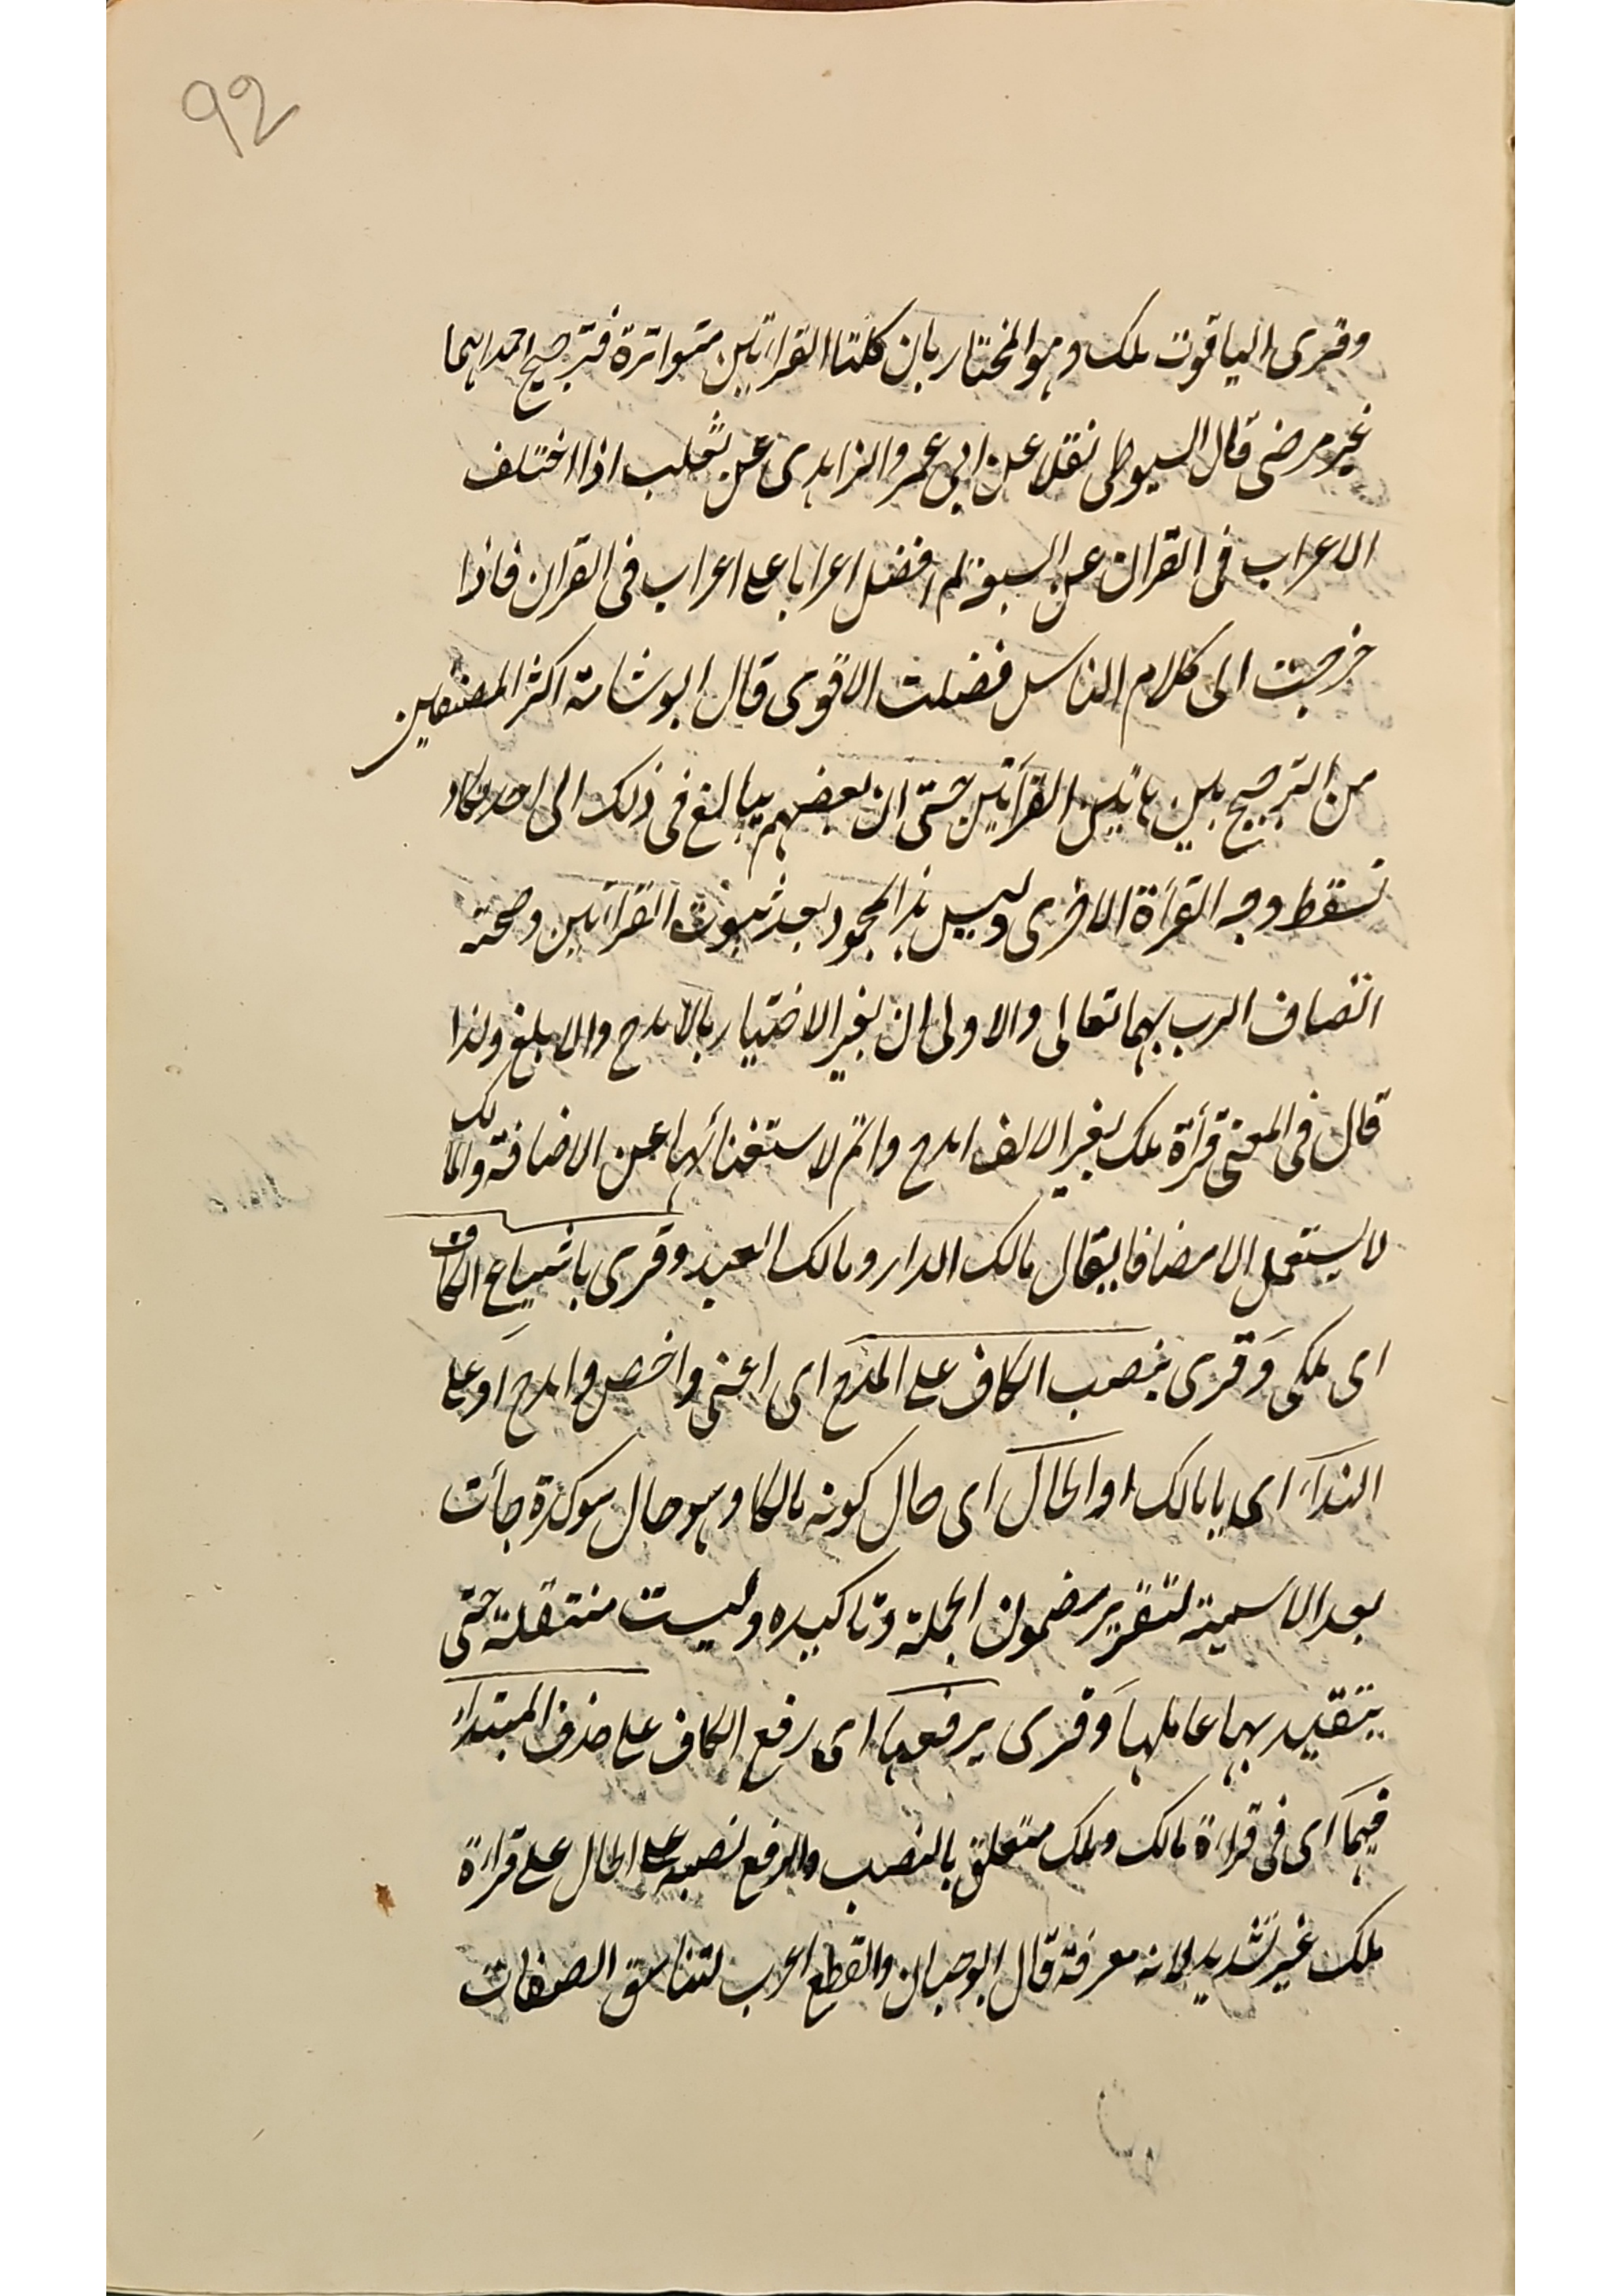 92
وقرى الياقوت ملك وهو المختار بان كلتا القراتين متواترة فترجيح احداهما
غير مرضى قال السيوطى نقلا عن ابى عمر والزاهدى عن ثعلب اذا اختلف
الاعراب فى القران عن السبعة لم افضل اعرابا على اعراب فى القران فاذا
خرجت الى كلام الناس فضلت الاقوى قال ابو شامة اكثر المصنفين
من الترجيح بين هاتين القرأتين حتى ان بعضهم يبالغ فى ذلك الى احد يكاد
تسقط وجه القرأة الاخرى وليس هذا بمحمود بعد ثبوت القرأتين وصحة
اتصاف الرب بهما تعالى والاولى ان يغير الاختيار بالامدح والابلغ ولذا
قال فى المغنى قرأة ملك بغير الالف امدح واتم لاستغنائها عن الاضافة والمالك
لا يستعمل الا مضافا يقال مالك الدار ومالك العبيد وقرى باشباع الكاف
اى ملكى وقرى بنصب الكاف على المدح اى اعنى واخص وامدح او على
النداء اى يا مالك او الحال اى حال كونه مالكا وهو حال موكدة جأت
بعد الاسمية لتقرير مضمون الجملة وتاكيده وليست منتقلة حتى
يتقيد بها عاملها وقرى برفعها اى رفع الكاف على حذف المبتداء
فيهما اى فى قراءة مالك وملك متعلق بالنصب والرفع نصبه على الحال على قراءة
ملك غير شديد لانه معرفة قال ابو حيان والقطع اعرب لتناسق الصفات